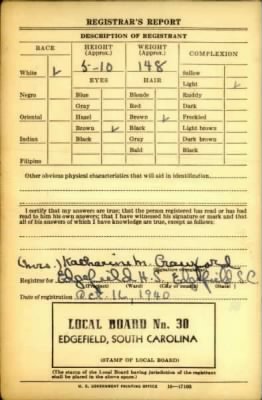 REGISTRAR'S REPORT
DESCRIPTION OF REGISTRANT
RACE HEIGHT (Approx.) WEIGHT (Approx.) COMPLEXION
White ✓ 5-10 148 Sallow
EYES HAIR Light ✓
Negro Blue Blonde Ruddy
Gray Red Dark
Oriental Hazel Brown ✓ Freckled
Brown ✓ Black Light brown
Indian Black Gray Dark brown
Bald Black
Filipino
Other obvious physical characteristics that will aid in identification
I certify that my answers are true; that the person registered has read or has had
read to him his own answers; that I have witnessed his signature or mark and that
all of his answers of which I have knowledge are true, except as follows:
Mrs. Katharine M. Crawford
Registrar for Edgefield H.S. Edgefield S.C.
(Precinct) (Ward) (City or county) (State)
Date of registration Oct. 16, 1940
LOCAL BOARD No. 30
EDGEFIELD, SOUTH CAROLINA
(STAMP OF LOCAL BOARD)
(The stamp of the Local Board having jurisdiction of the registrant
shall be placed in the above space.)
U. S. GOVERNMENT PRINTING OFFICE 16—17105